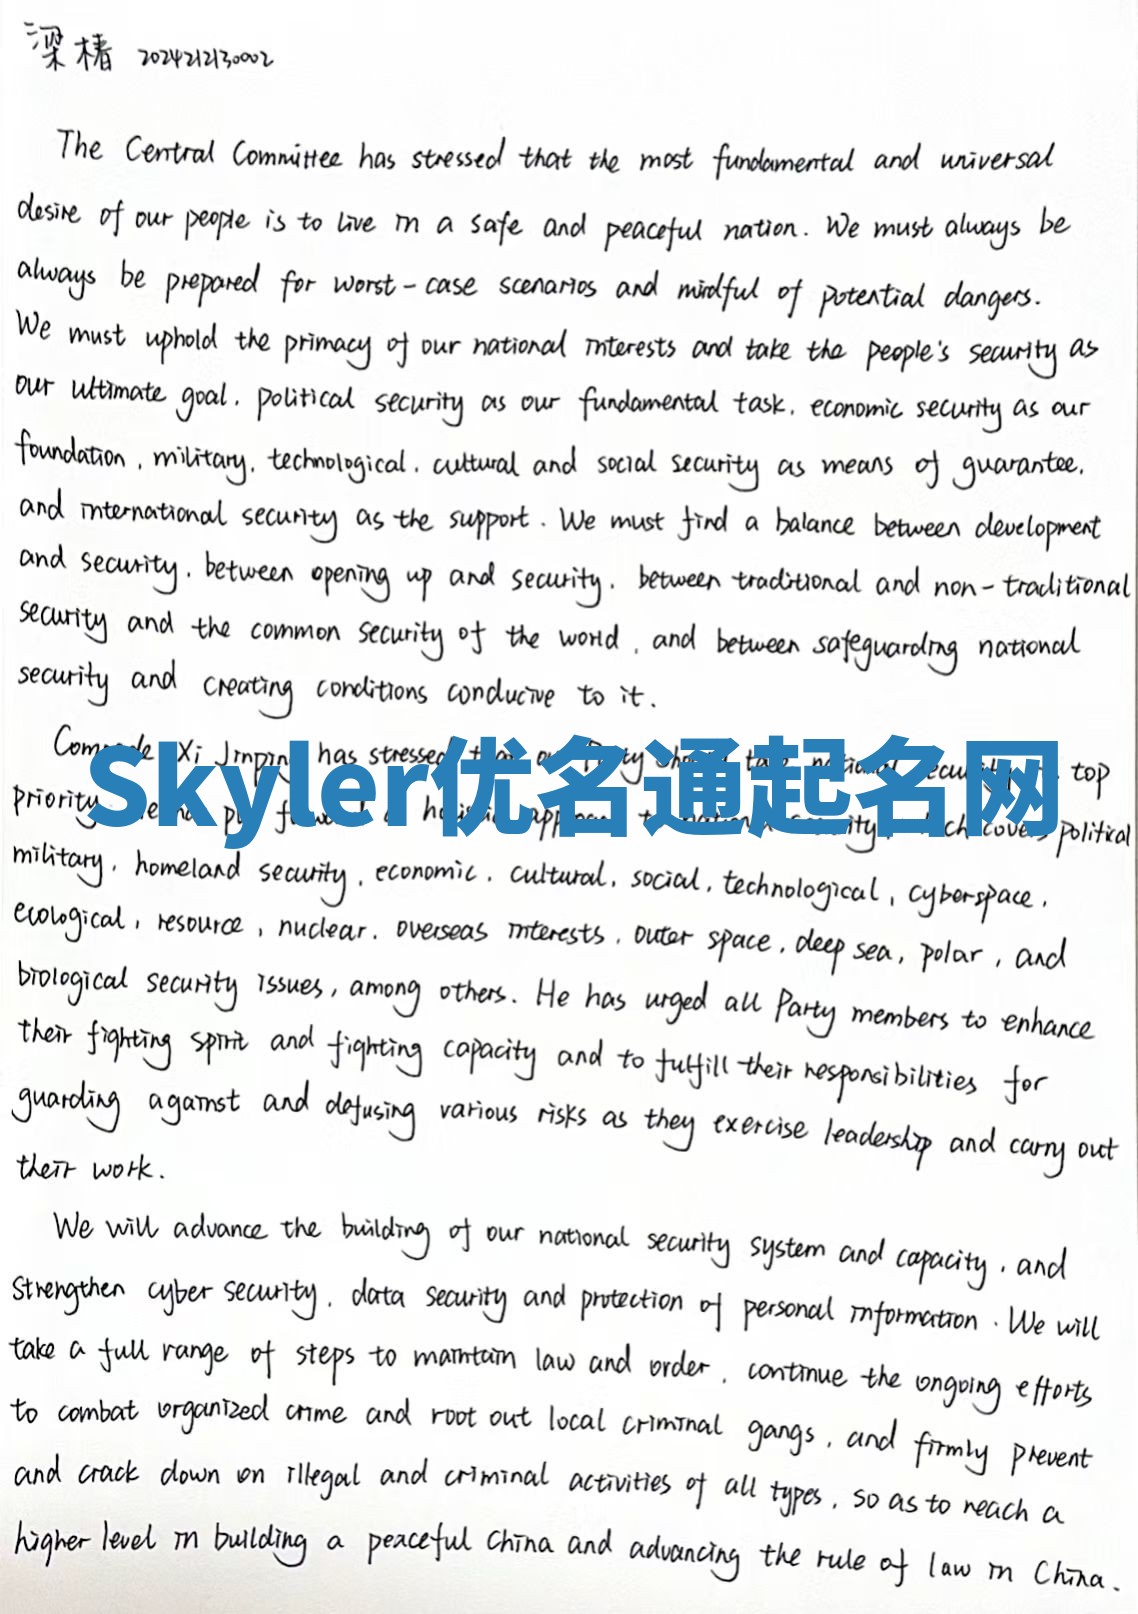 梁椿 2024212130002
The Central Committee has stressed that the most fundamental and universal
desire of our people is to live in a safe and peaceful nation. We must always be
always be prepared for worst-case scenarios and mindful of potential dangers.
We must uphold the primacy of our national interests and take the people's security as
our ultimate goal, political security as our fundamental task, economic security as our
foundation, military, technological, cultural and social security as means of guarantee,
and international security as the support. We must find a balance between development
and security, between opening up and security, between traditional and non-traditional
security and the common security of the world, and between safeguarding national
security and creating conditions conducive to it.
Comrade Xi Jinping has stressed that our Party should take national security top
Skyler优名通起名网
priority. a holistic approach to national security, which covers political
military, homeland security, economic, cultural, social, technological, cyberspace,
ecological, resource, nuclear, overseas interests, outer space, deep sea, polar, and
biological security issues, among others. He has urged all Party members to enhance
their fighting spirit and fighting capacity and to fulfill their responsibilities for
guarding against and defusing various risks as they exercise leadership and carry out
their work.
We will advance the building of our national security system and capacity, and
strengthen cyber security, data security and protection of personal information. We will
take a full range of steps to maintain law and order, continue the ongoing efforts
to combat organized crime and root out local criminal gangs, and firmly prevent
and crack down on illegal and criminal activities of all types, so as to reach a
higher level in building a peaceful China and advancing the rule of law in China.